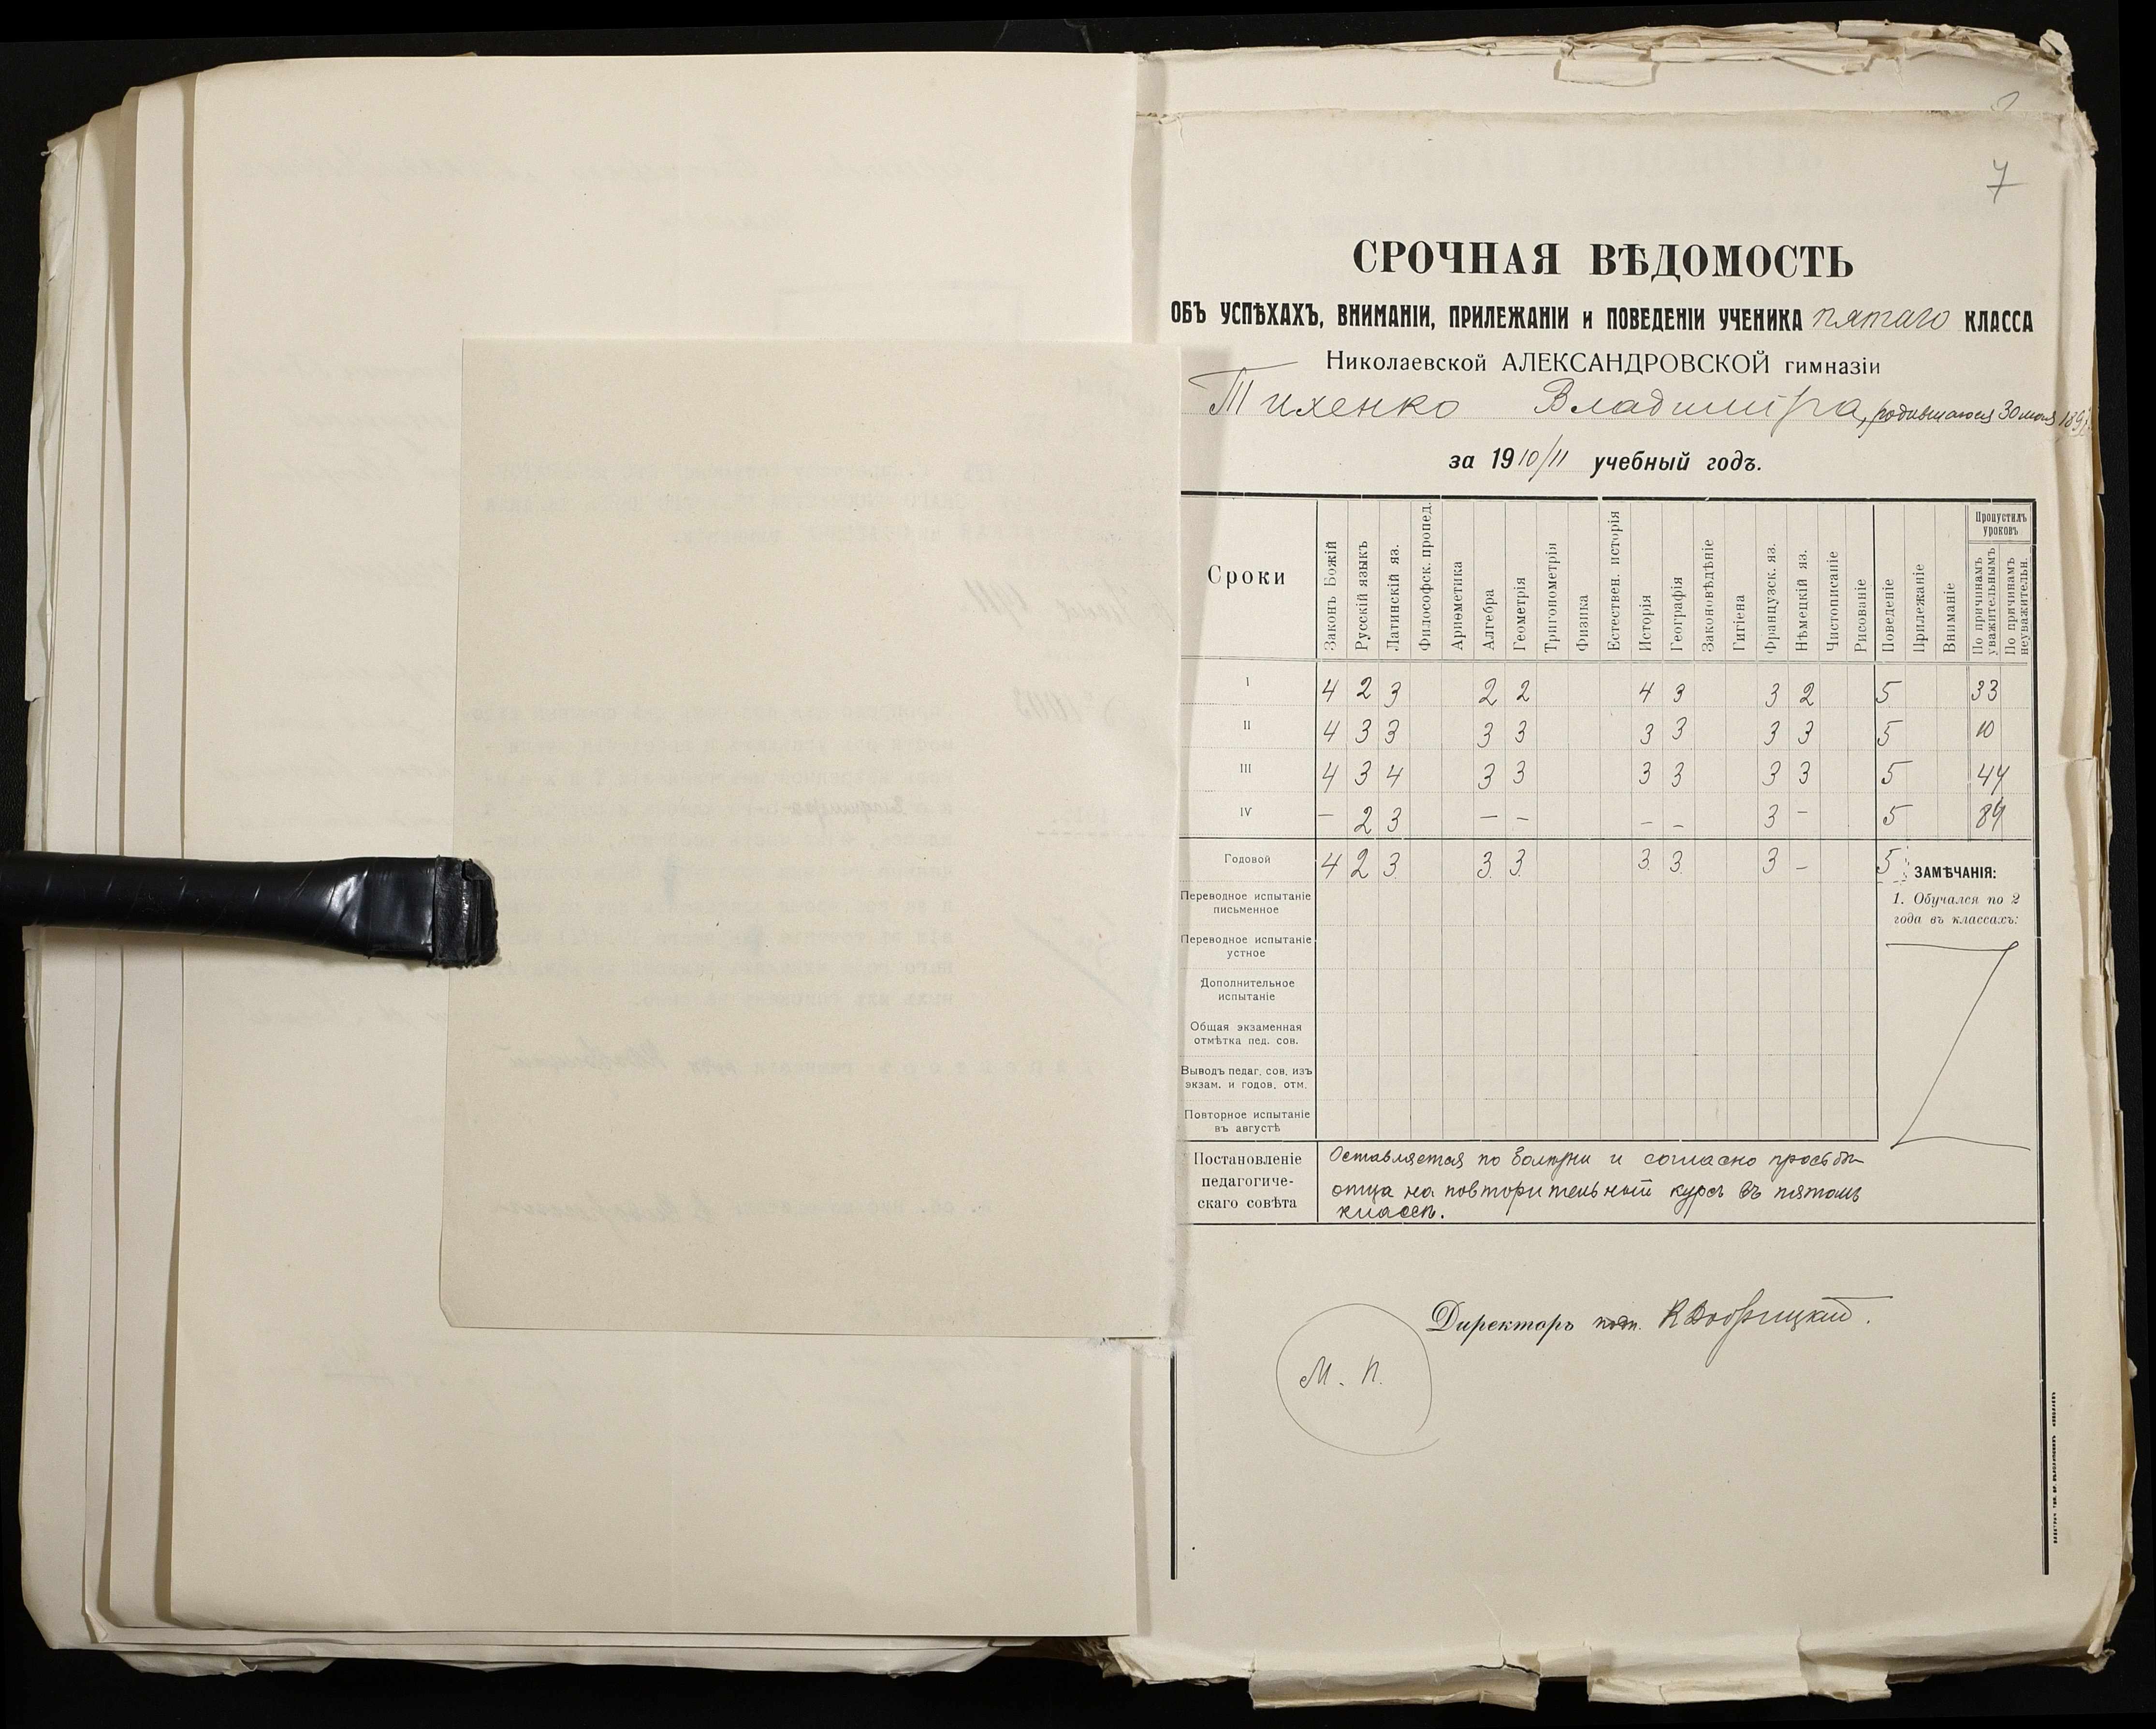 7
СРОЧНАЯ ВѢДОМОСТЬ
ОБЪ УСПѢХАХЪ, ВНИМАНІИ, ПРИЛЕЖАНІИ и ПОВЕДЕНІИ УЧЕНИКА пятаго КЛАССА
Николаевской АЛЕКСАНДРОВСКОЙ гимназіи
Тихенко Владиміра, родившагося 30 мая
за 1910/11 учебный годъ.
Сроки Законъ Божій Русскій языкъ Латинскій яз. Философск. пропед. Ариѳметика Алгебра Геометрія Тригонометрія Физика Естествен. исторія Исторія Географія Законовѣдѣніе Гигіена Французск. яз. Нѣмецкій яз. Чистописаніе Рисованіе Поведеніе Прилежаніе Вниманіе Пропустилъ уроковъ По причинамъ уважительнымъ По причинамъ неуважительн.
I 4 2 3 2 2 4 3 3 2 5 33
II 4 3 3 3 3 3 3 3 3 5 10
III 4 3 4 3 3 3 3 3 3 5 44
IV – 2 3 – – – – 3 – 5 89
Годовой 4 2 3 3 3 3 3 3 – 5
ЗАМѢЧАНІЯ:
1. Обучался по 2
года въ классахъ:
Переводное испытаніе
письменное
Переводное испытаніе
устное
Дополнительное
испытаніе
Общая экзаменная
отмѣтка пед. сов.
Выводъ педаг. сов. изъ
экзам. и годов. отм.
Повторное испытаніе
въ августѣ
Постановленіе
педагогиче-
скаго совѣта
Оставляется по болѣзни и согласно просьбы
отца на повторительный курсъ въ пятомъ
классѣ.
Директоръ подп. К Добрицкій.
М. П.